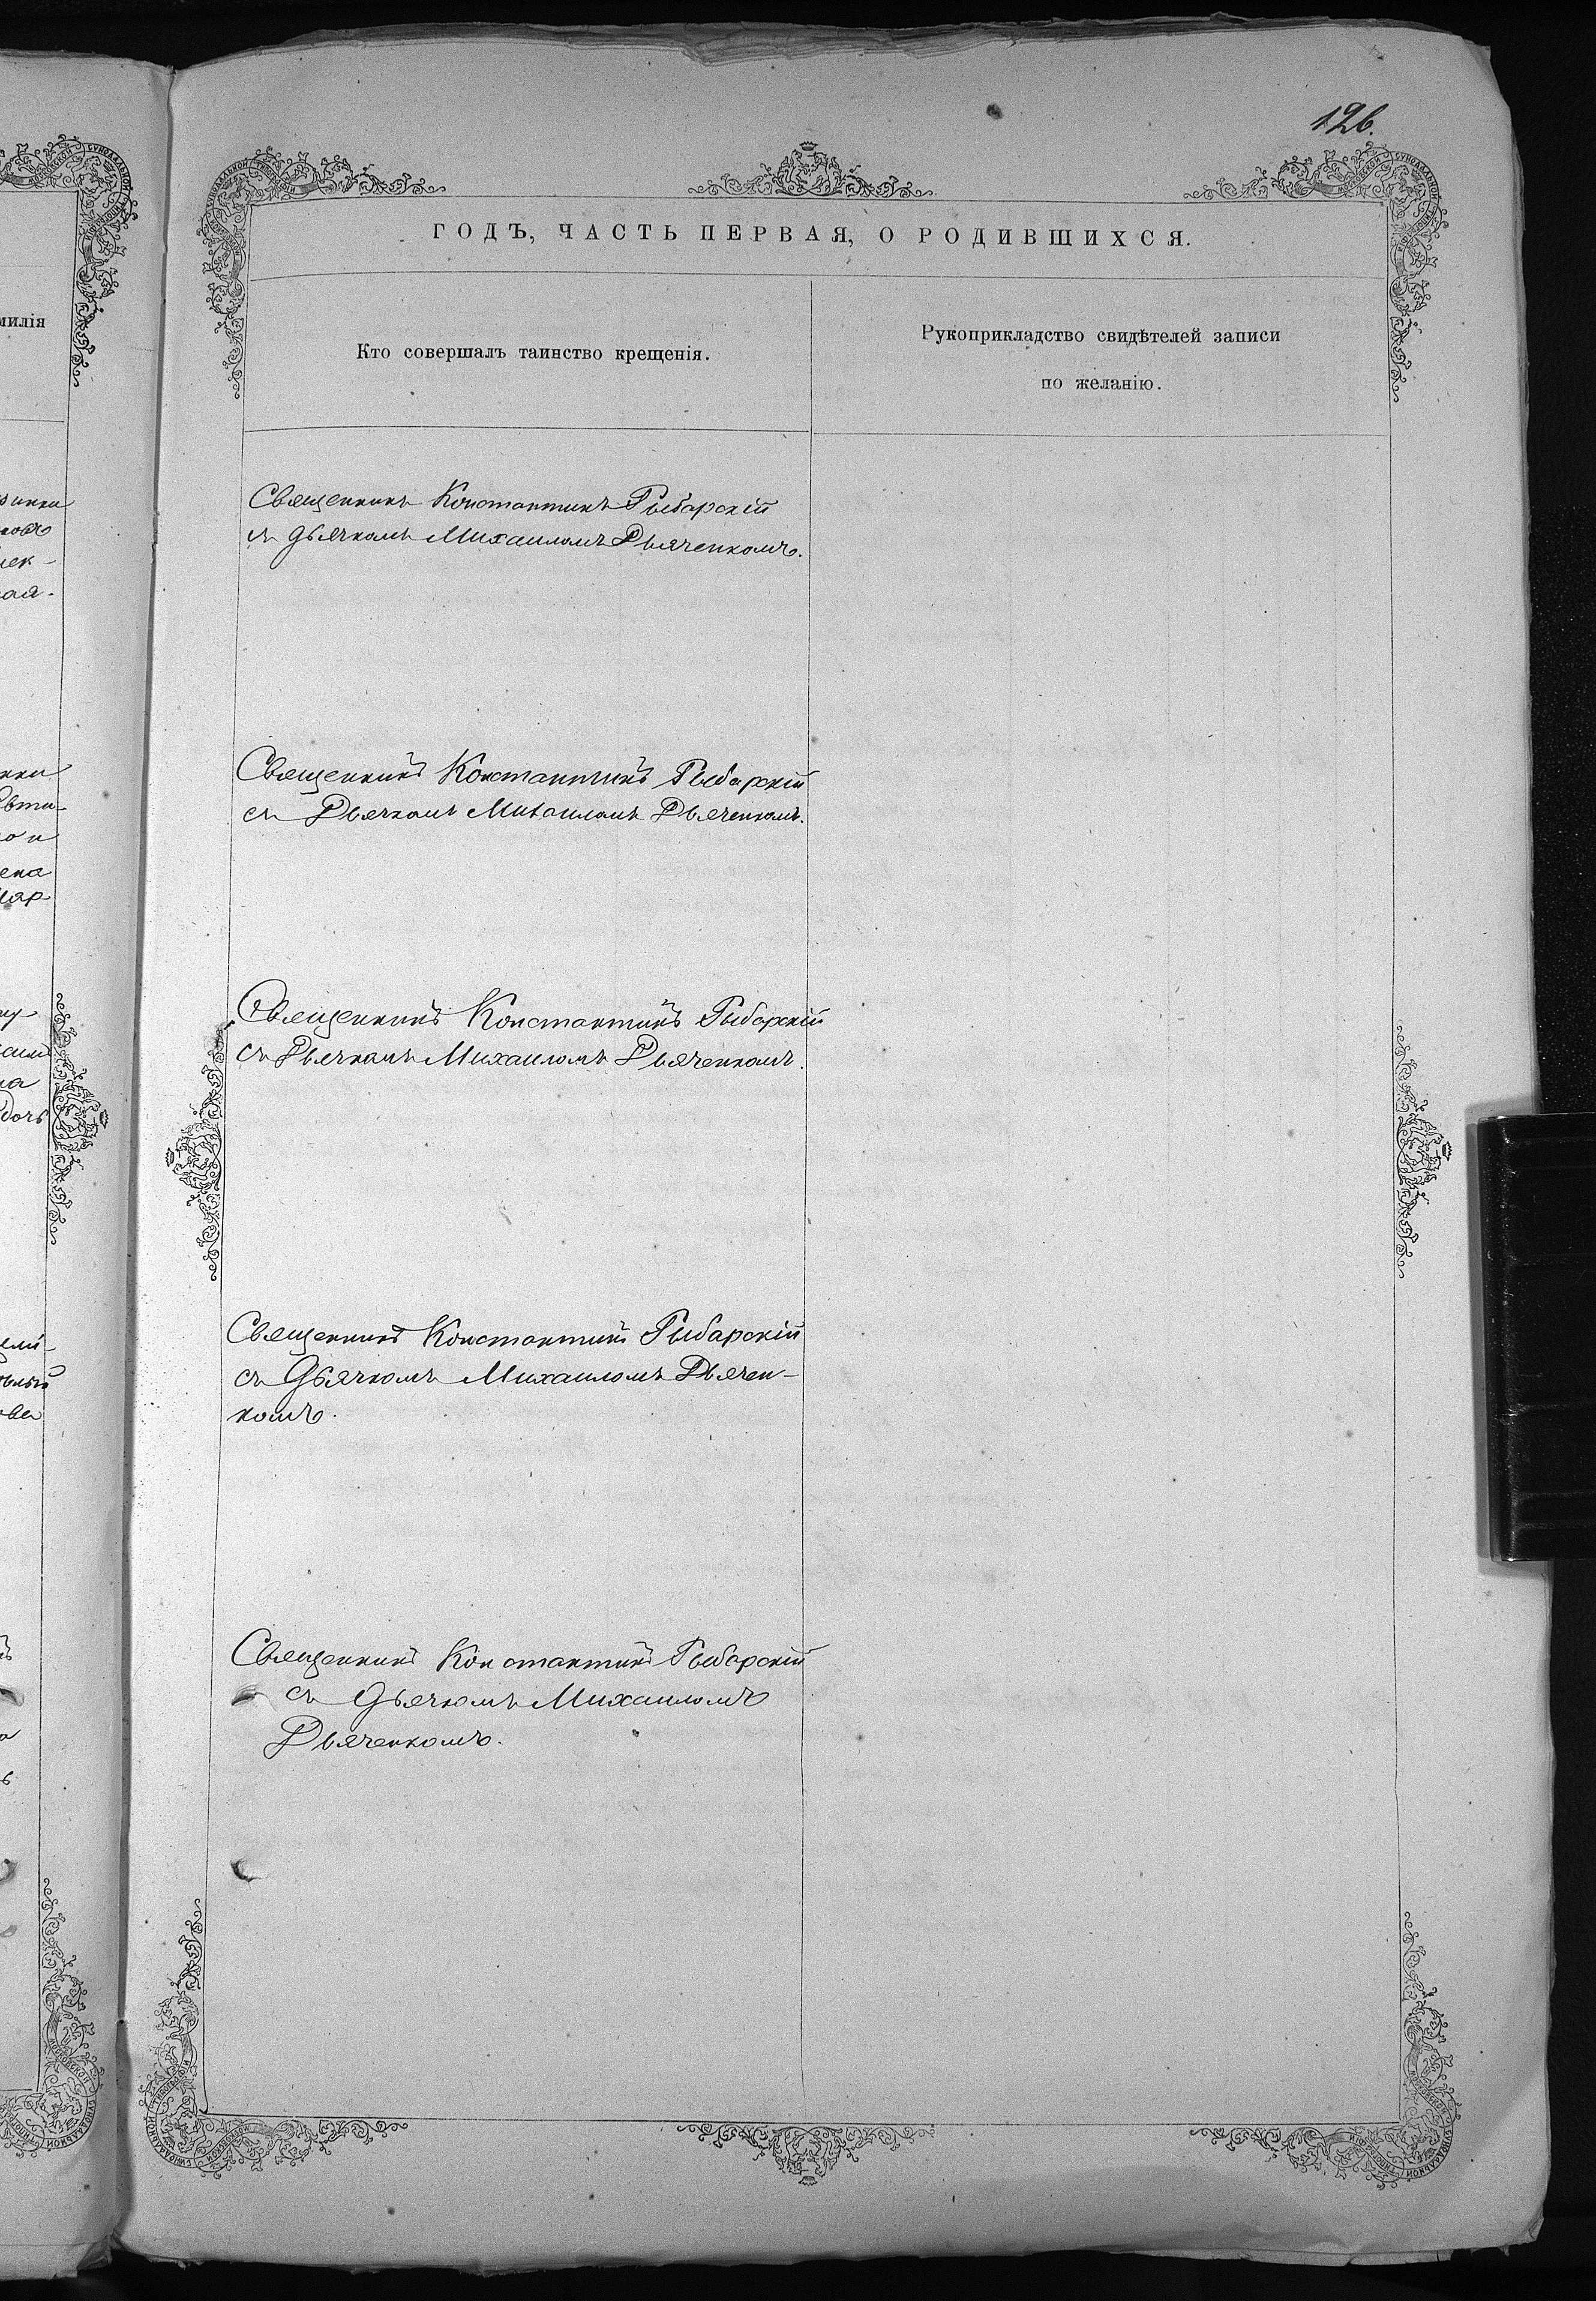 126.
ГОДЪ, ЧАСТЬ ПЕРВАЯ, О РОДИВШИХСЯ.
Кто совершалъ таинство крещенія.
Рукоприкладство свидѣтелей записи
по желанію.
Священникъ Константинъ Рыбарскій
съ дьячкомъ Михаиломъ Дьяченкомъ.
Священникъ Константинъ Рыбарскій
съ Дьячкомъ Михаиломъ Дьяченкомъ.
Священникъ Константинъ Рыбарскій
съ Дьячкомъ Михаиломъ Дьяченкомъ.
Священникъ Константинъ Рыбарскій
съ Дьячкомъ Михаиломъ Дьячен-
комъ.
Священникъ Константинъ Рыбарскій
съ Дьячкомъ Михаиломъ
Дьяченкомъ.